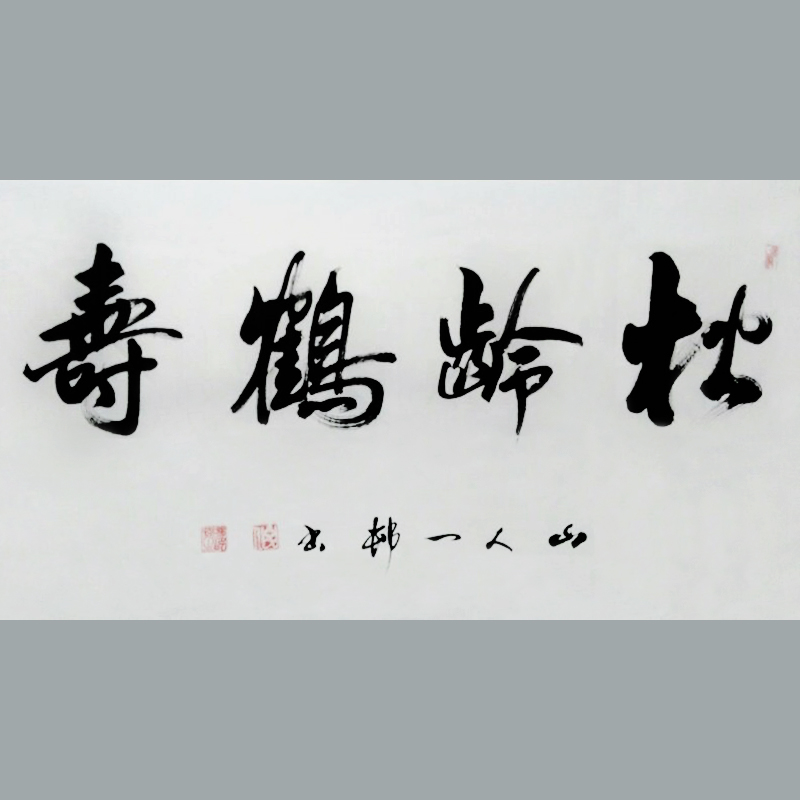 松齡鶴壽
山人一邨书